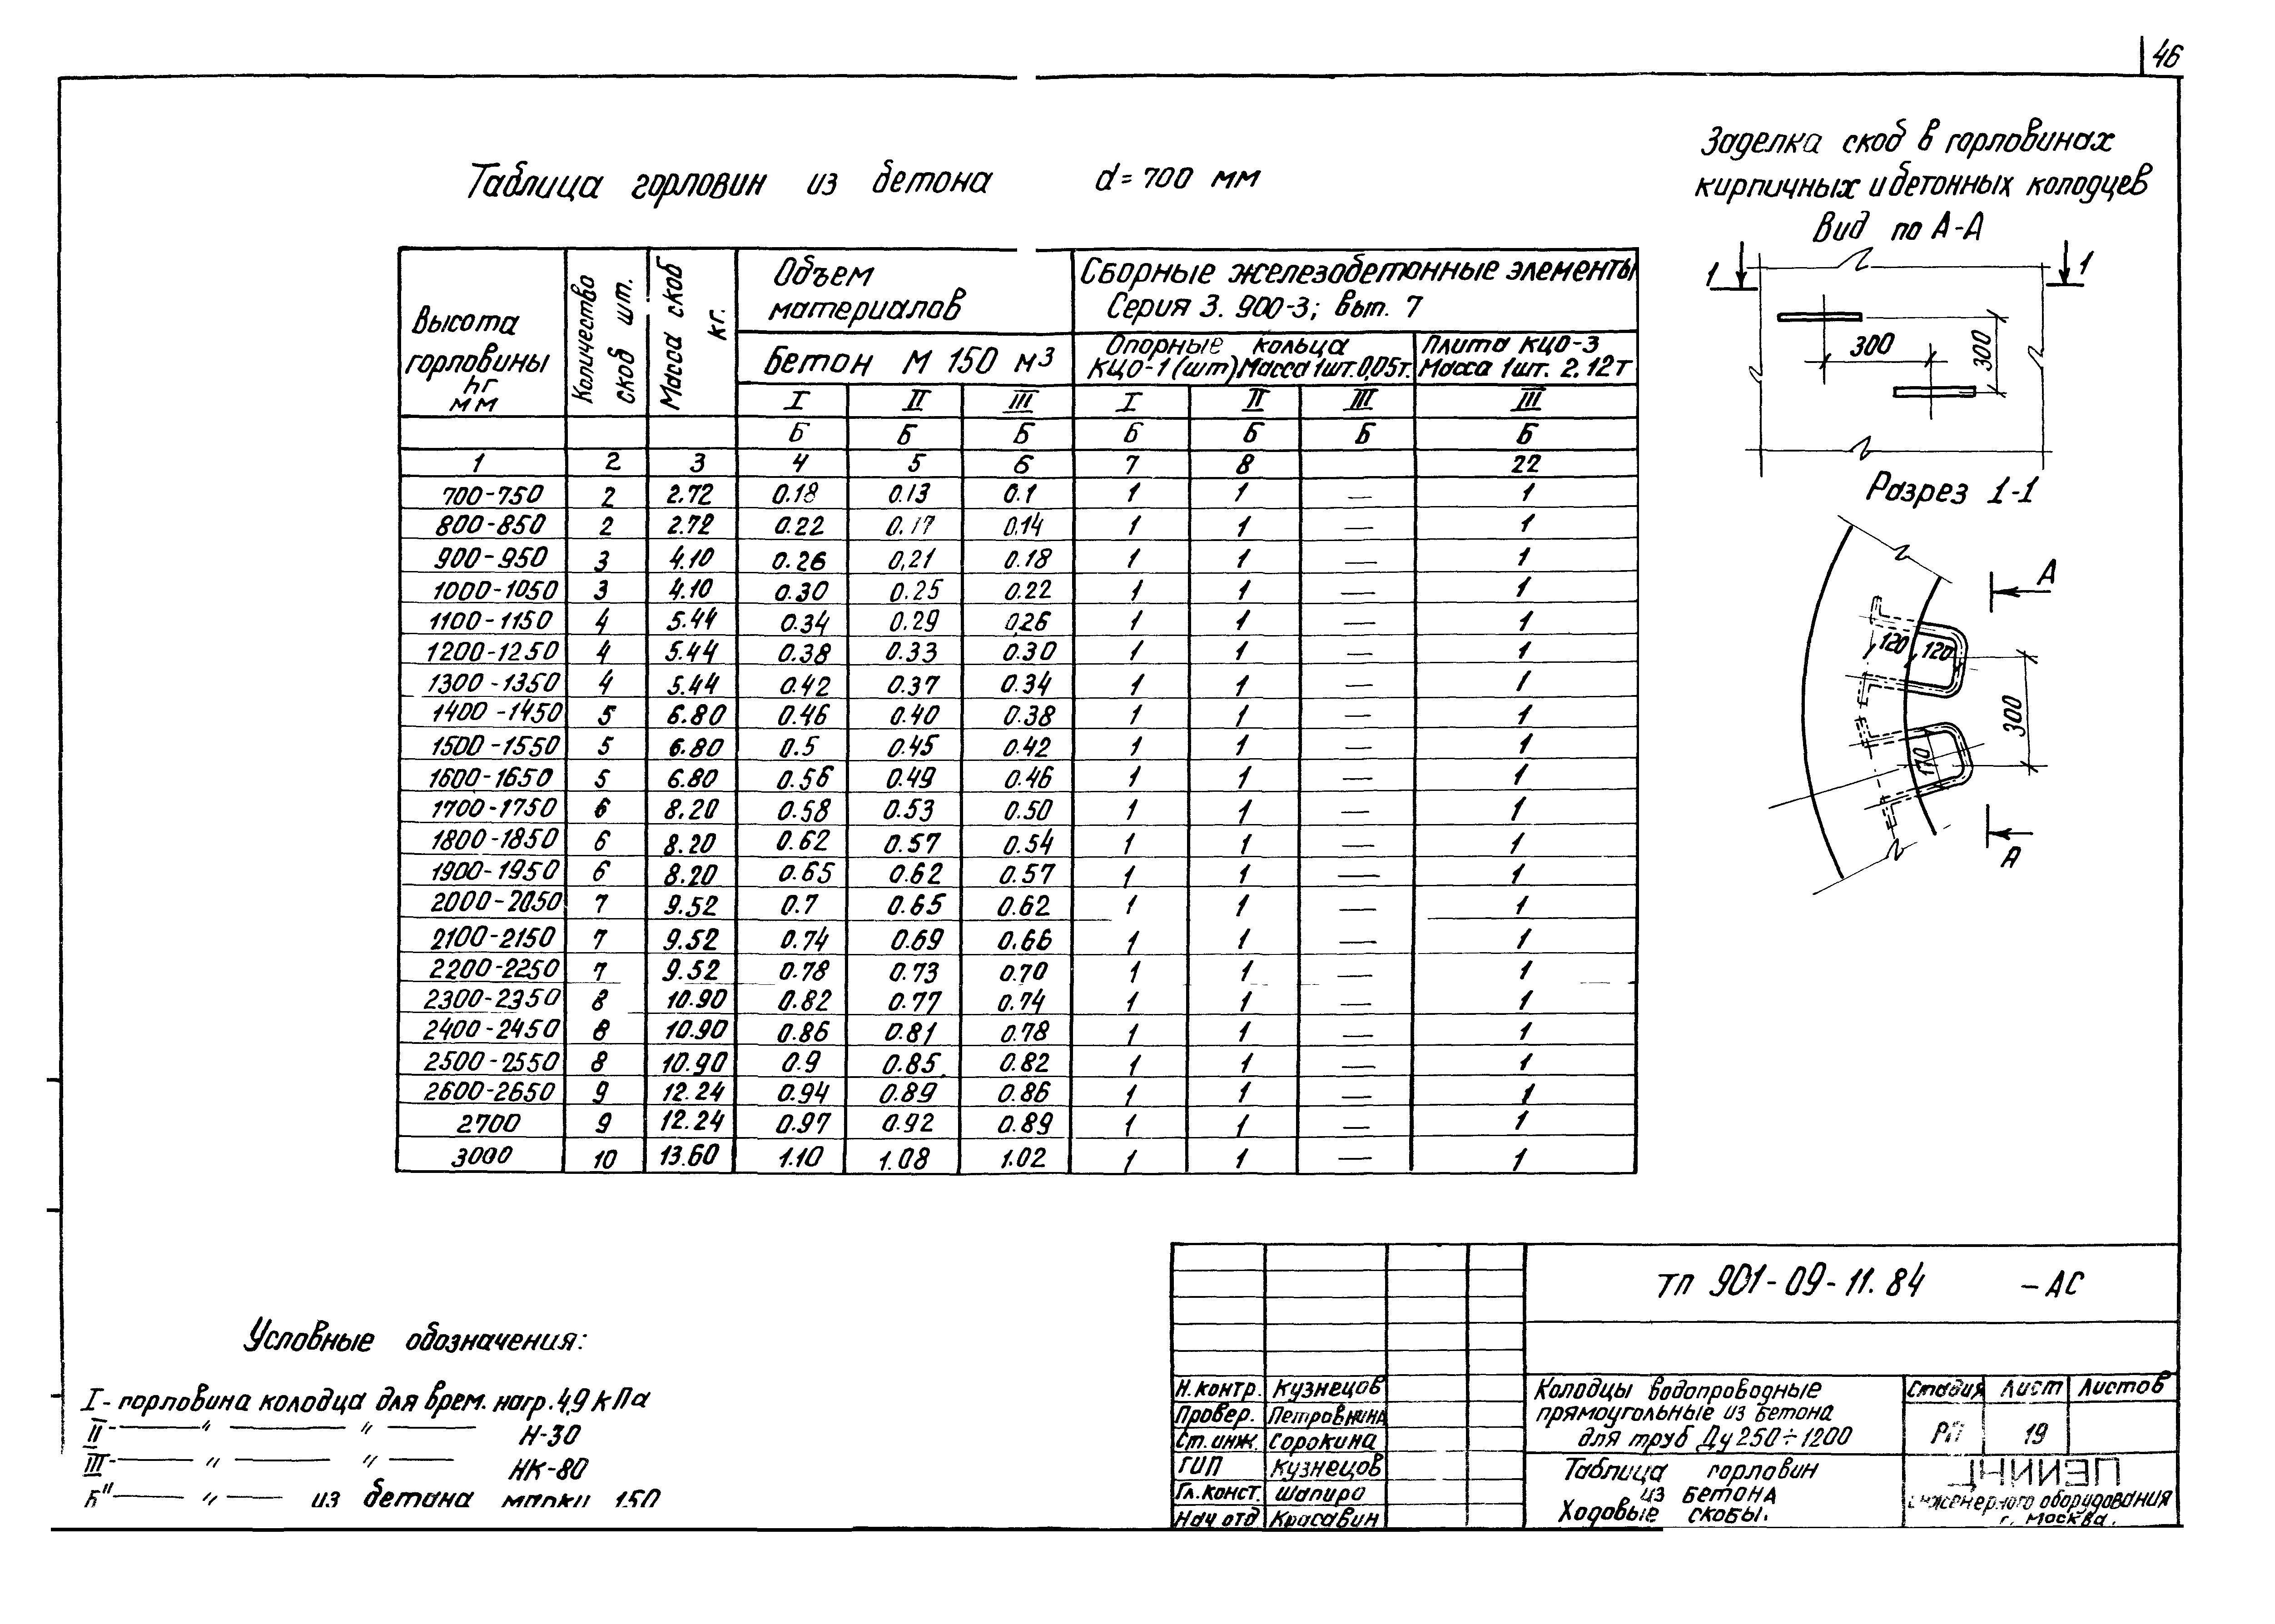 46
Таблица горловин из бетона d=700 мм
Высота горловины hг мм
Количество скоб шт.
Масса скоб кг.
Объем материалов
Бетон М 150 м3
Сборные железобетонные элементы
Серия 3. 900-3; вып. 7
Опорные кольца КЦО-1 (шт) Масса 1шт. 0,05т.
Плита КЦО-3 Масса 1шт. 2.12т
I II III I II III III
Б Б Б Б Б Б Б
1 2 3 4 5 6 7 8 22
700-750 2 2.72 0.18 0.13 0.1 1 1 — 1
800-850 2 2.72 0.22 0.17 0.14 1 1 — 1
900-950 3 4.10 0.26 0,21 0.18 1 1 — 1
1000-1050 3 4.10 0.30 0.25 0.22 1 1 — 1
1100-1150 4 5.44 0.34 0.29 0,26 1 1 — 1
1200-1250 4 5.44 0.38 0.33 0.30 1 1 — 1
1300-1350 4 5.44 0.42 0.37 0.34 1 1 — 1
1400-1450 5 6.80 0.46 0.40 0.38 1 1 — 1
1500-1550 5 6.80 0.5 0.45 0.42 1 1 — 1
1600-1650 5 6.80 0.56 0.49 0.46 1 1 — 1
1700-1750 6 8.20 0.58 0.53 0.50 1 1 — 1
1800-1850 6 8.20 0.62 0.57 0.54 1 1 — 1
1900-1950 6 8.20 0.65 0.62 0.57 1 1 — 1
2000-2050 7 9.52 0.7 0.65 0.62 1 1 — 1
2100-2150 7 9.52 0.74 0.69 0.66 1 1 — 1
2200-2250 7 9.52 0.78 0.73 0.70 1 1 — 1
2300-2350 8 10.90 0.82 0.77 0.74 1 1 — 1
2400-2450 8 10.90 0.86 0.81 0.78 1 1 — 1
2500-2550 8 10.90 0.9 0.85 0.82 1 1 — 1
2600-2650 9 12.24 0.94 0.89 0.86 1 1 — 1
2700 9 12.24 0.97 0.92 0.89 1 1 — 1
3000 10 13.60 1.10 1.08 1.02 1 1 — 1
Заделка скоб в горловинах
кирпичных и бетонных колодцев
Вид по А-А
1 1
300
300
Разрез 1-1
А
120 120
300
170
А
Условные обозначения:
I - горловина колодца для врем. нагр. 4,9 кПа
II - — " — " — Н-30
III - — " — " — НК-80
Б" — " — из бетона марки 150
ТП 901-09-11.84 -АС
Н.контр. Кузнецов
Провер. Петровнина
Ст.инж. Сорокина
ГИП Кузнецов
Гл.конст. Шапиро
Нач отд Красавин
Колодцы водопроводные
прямоугольные из бетона
для труб Ду 250÷1200
Стадия Лист Листов
РП 19
Таблица горловин
из бетона
Ходовые скобы.
ЦНИИЭП
инженерного оборудования
г. Москва.